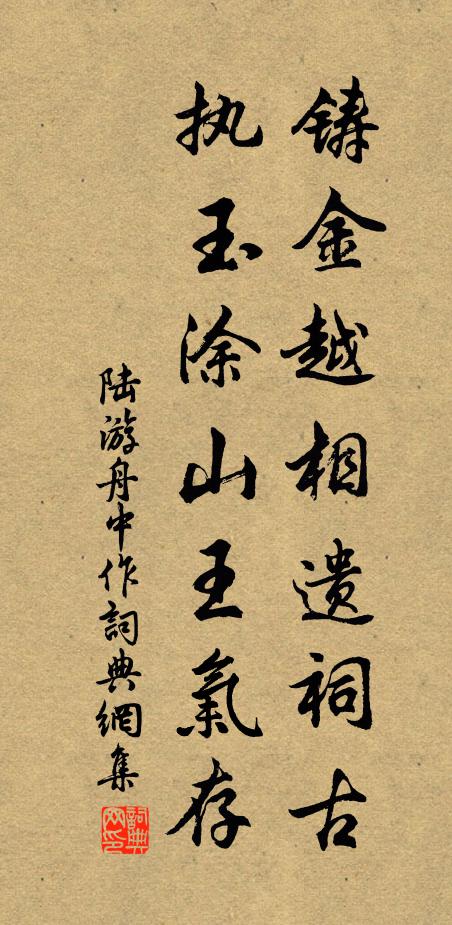 铸金越相遗祠古
执玉涂山王氣存
陆游舟中作詞典網集
詞典网印